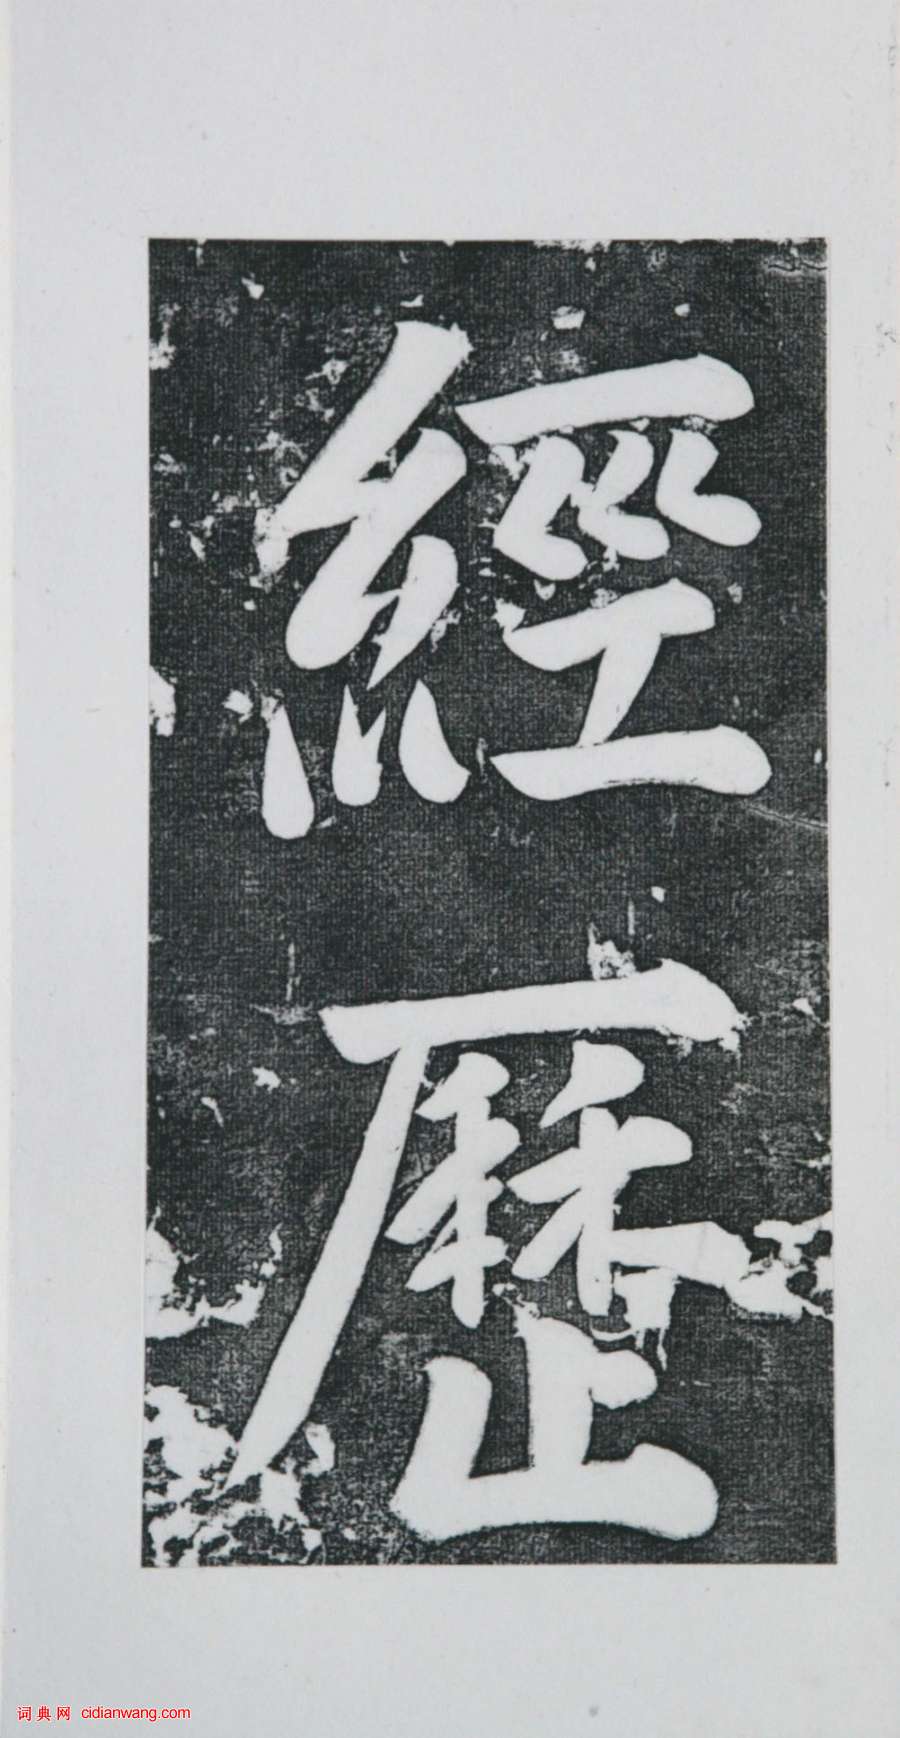 經
歷
词典网 cidianwang.com